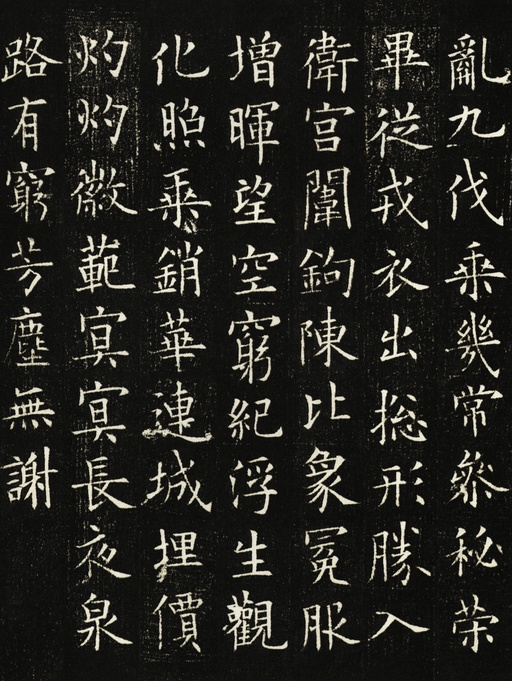 亂九伐乘幾常參秘荣
畢從戎衣出捴形勝入
衛宫闈鉤陳比象冕服
增暉望空窮紀浮生觀
化照乘銷華連城埋價
灼灼徽範冥冥長夜泉
路有窮芳塵無謝